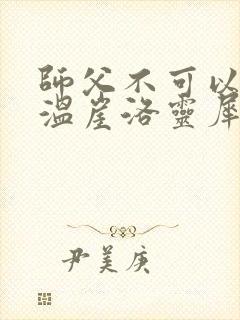 師父不可以
溫崖洛靈犀
尹美庚